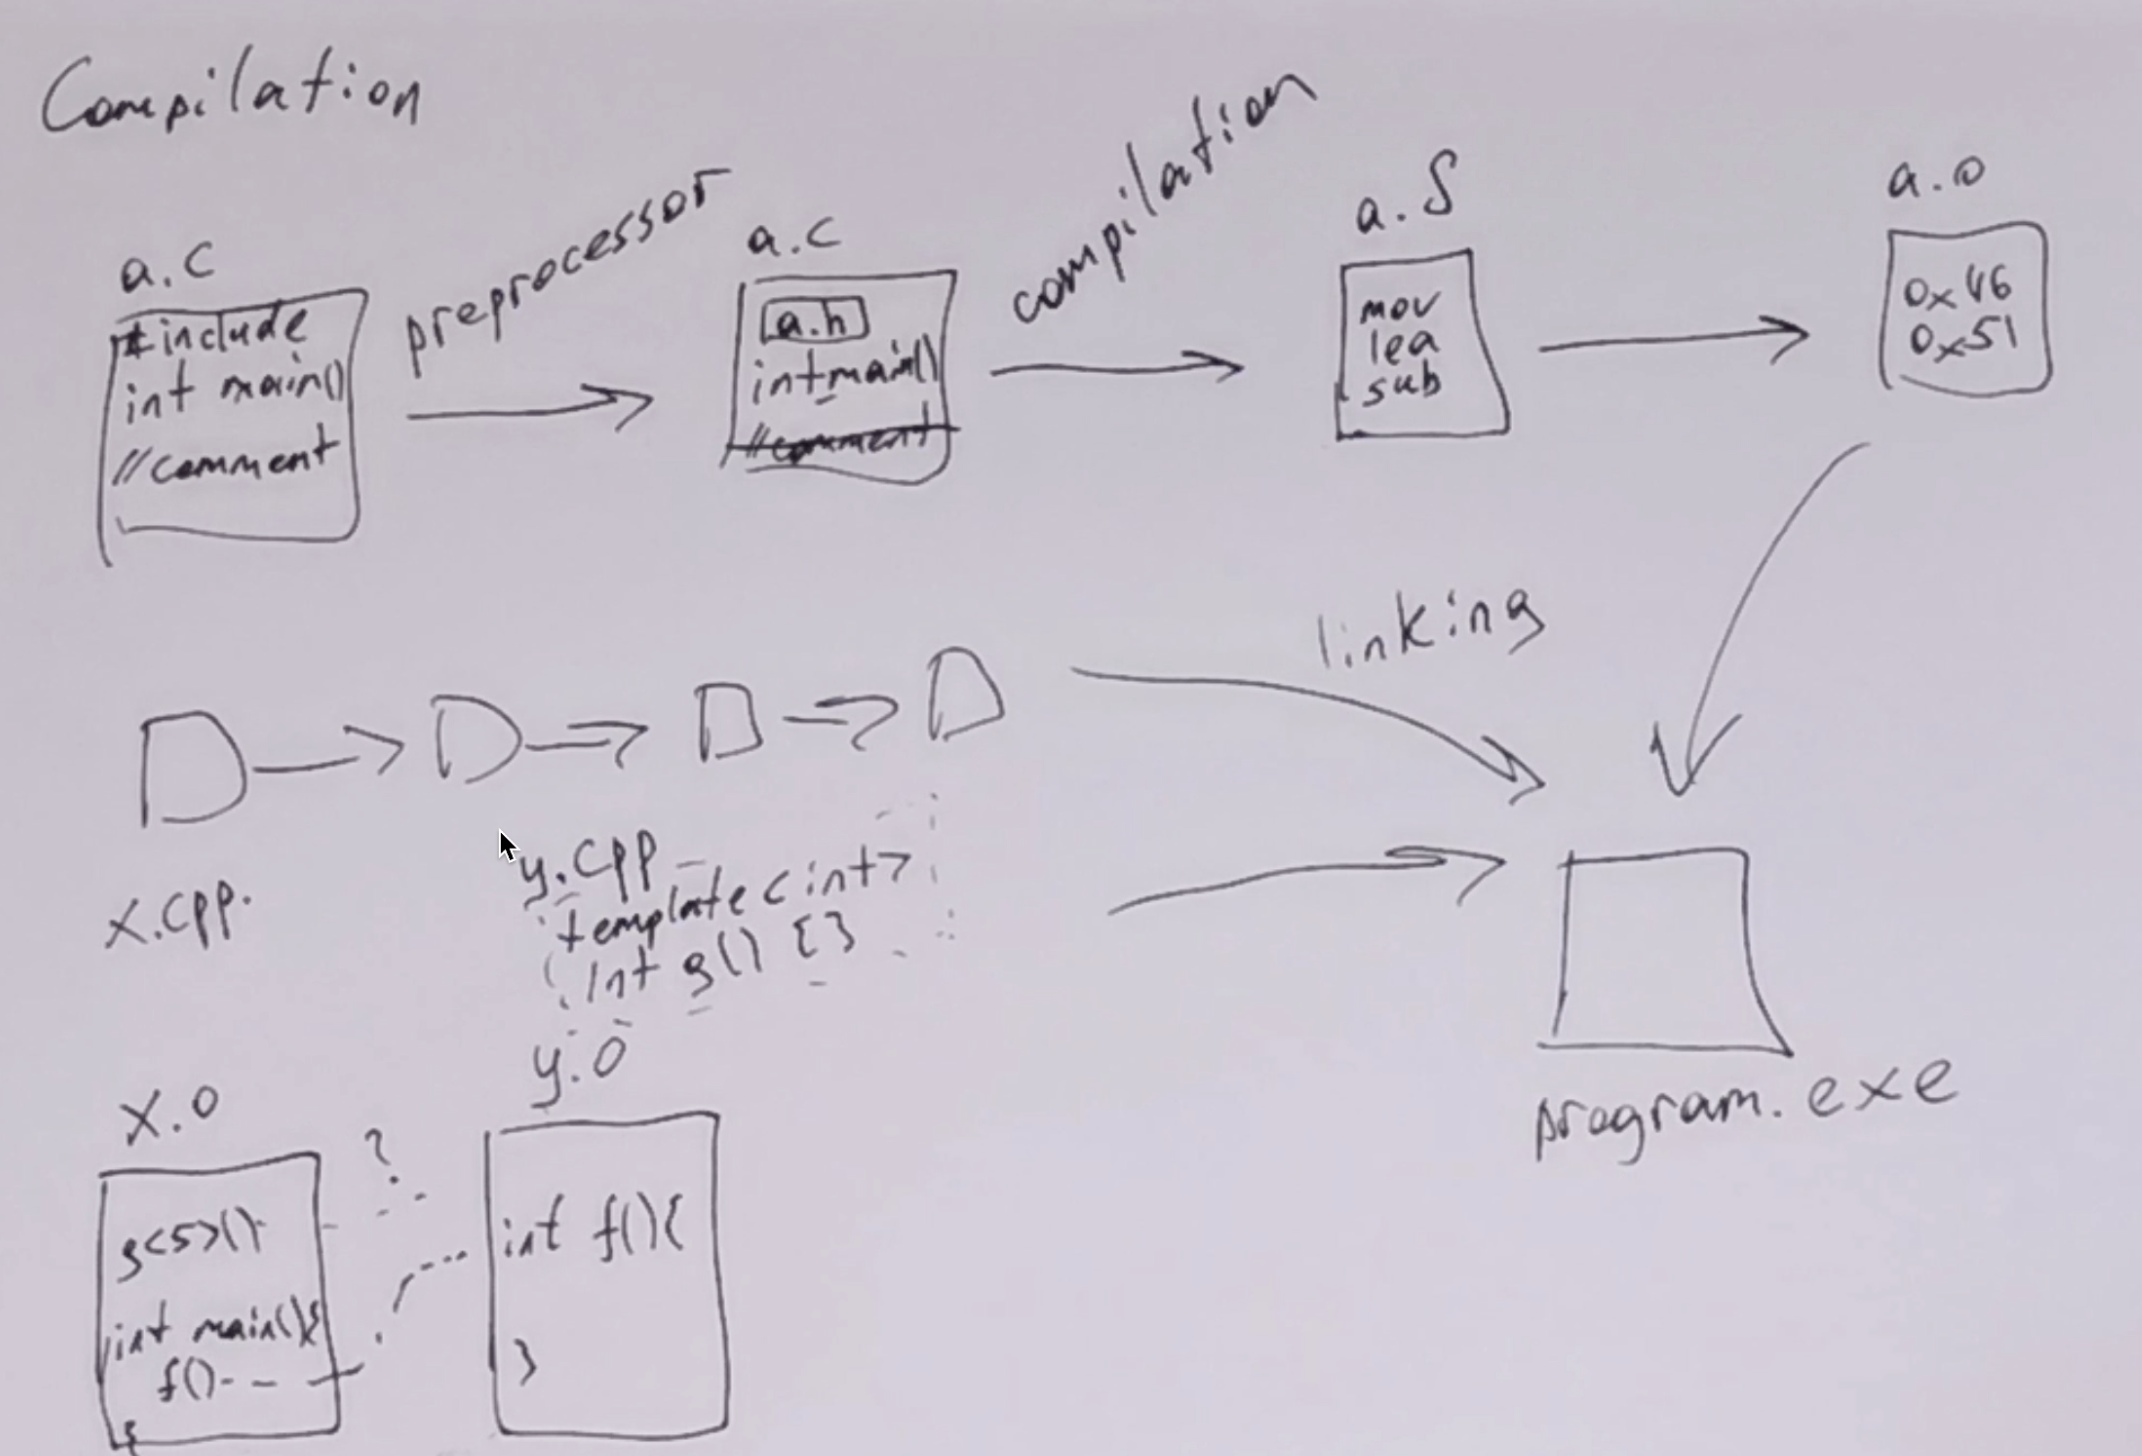 Compilation
a.c
#include
int main()
//comment
preprocessor
a.c
a.h
int main()
//comment
compilation
a.S
mov
lea
sub
a.o
0x46
0x51
linking
x.cpp.
y.cpp
template<int>
int g() {}
x.o
g<5>()
int main(){
f()
}
?
y.o
int f(){
}
program.exe